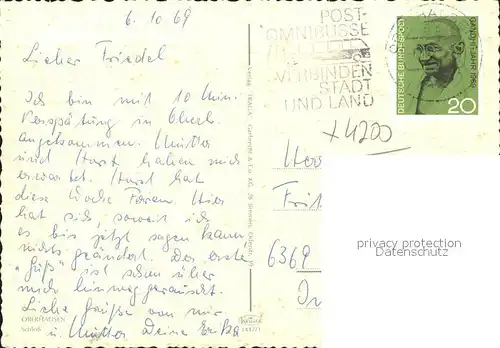 6.10.69
Lieber Friedel
Ich bin mit 10 Min.
Verspätung in Oberh.
angekommen. Mutter
und Horst haben mich
erwartet. Horst hat
diese Woche Ferien. Hier
hat sich, soweit ich
es bis jetzt sagen kann
nichts geändert. Der erste
"Guß" ist schon über
mich hinweggerauscht.
Liebe Grüße von mir
u. Mutter Deine
OBERHAUSEN
Schloß
POST-
OMNIBUSSE
VERBINDEN
STADT
UND LAND
DEUTSCHE BUNDESPOST
GANDHI-JAHR 1969
20
x4200
Herr
6369
privacy protection
Datenschutz